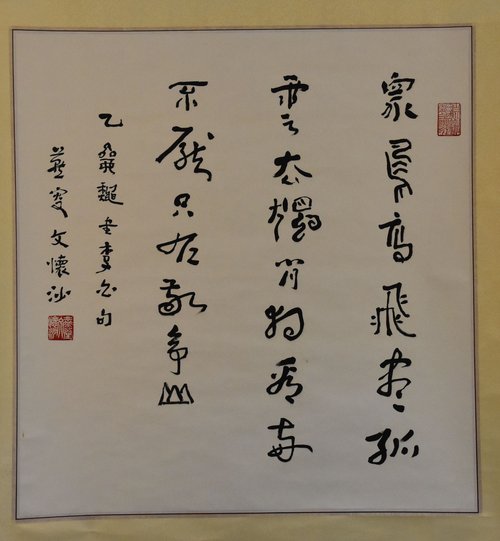 眾鳥高飛盡孤
雲去獨閒相看兩
不厭只有敬亭山
乙 書李白句
燕叟文懷沙